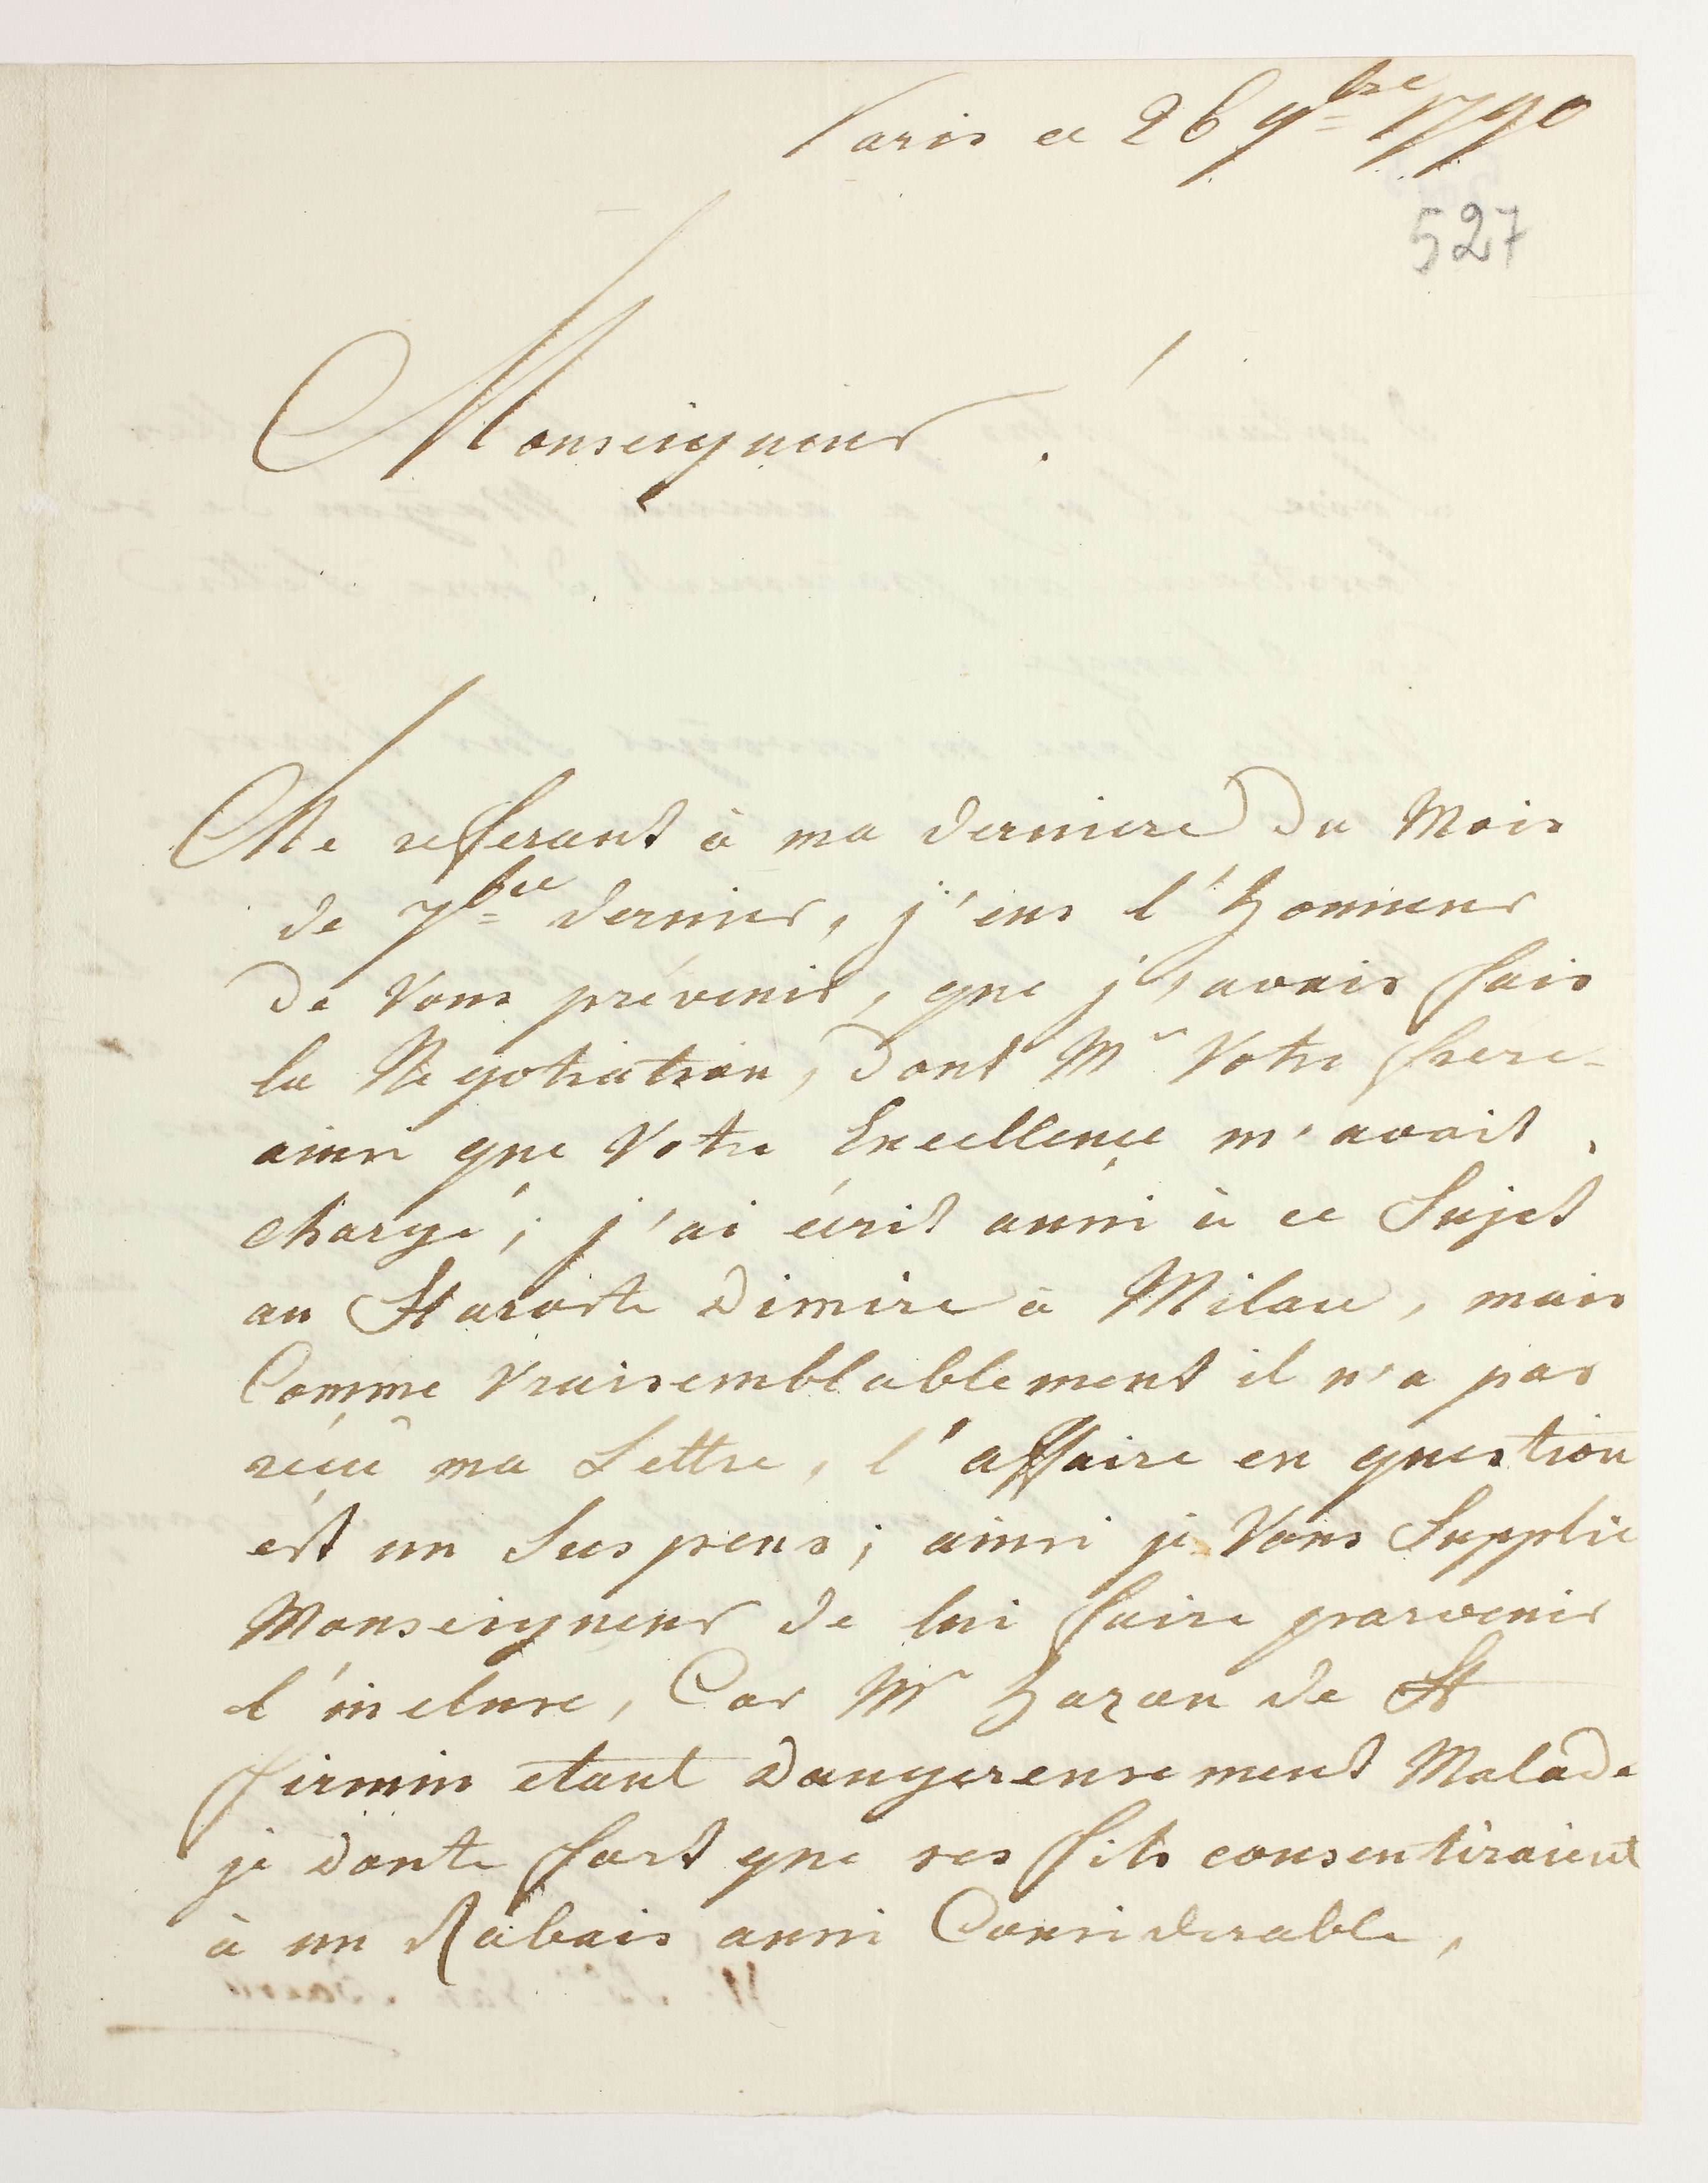 Paris ce 26 9bre 1790
527
Monseigneur !
Me referant à ma derniere du Mois
de 7bre dernier, j'eus l'honneur
de Vous prévenir, que j'avais fais
la Negotiation, dont Mr Votre frere
ainsi que Votre Excellence m'avait
chargé; j'ai écrit aussi à ce Sujet
au Staroste Dimire à Milan, mais
Comme Vraisemblablement il n'a pas
réçu ma Lettre, l'affaire en question
est un Suspens; ainsi je Vous Supplie
Monseigneur de lui faire parvenir
l'incluse, Car Mr Hazon de St
firmin etant Dangereusement Malade
je doute fort que ses fils consentiraient
à un Rabais aussi Considerable,